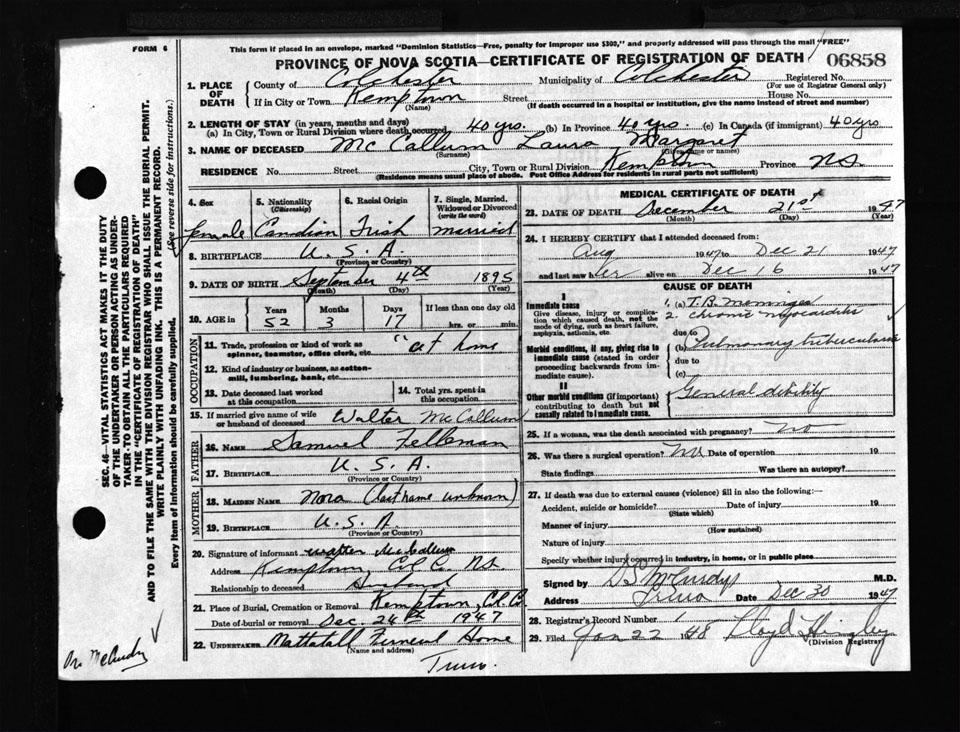 This form if placed in an envelope, marked "Dominion Statistics—Free, penalty for improper use $300," and properly addressed will pass through the mail "FREE"
FORM 6
PROVINCE OF NOVA SCOTIA—CERTIFICATE OF REGISTRATION OF DEATH
06858
1. PLACE OF DEATH
County of Colchester Municipality of Colchester Registered No.
(For use of Registrar General only)
If in City or Town Kemptown Street House No.
(Name) (If death occurred in a hospital or institution, give the name instead of street and number)
2. LENGTH OF STAY (in years, months and days)
(a) In City, Town or Rural Division where death occurred 40 yrs. (b) In Province 40 yrs. (c) In Canada (if immigrant) 40 yrs
3. NAME OF DECEASED McCallum Laura Margaret
(Surname) (Given name or names)
RESIDENCE No. Street City, Town or Rural Division Kemptown Province N.S.
(Residence means usual place of abode. Post Office Address for residents in rural parts not sufficient)
4. Sex
female
5. Nationality
(Citizenship)
Candian
6. Racial Origin
Irish
7. Single, Married, Widowed or Divorced
(write the word)
married
8. BIRTHPLACE U. S. A.
(Province or Country)
9. DATE OF BIRTH September 4th 1895
(Month) (Day) (Year)
10. AGE in
Years Months Days If less than one day old
52 3 17 hrs. or min.
OCCUPATION
11. Trade, profession or kind of work as
spinner, teamster, office clerk, etc. "at home
12. Kind of industry or business, as cotton-
mill, lumbering, bank, etc.
13. Date deceased last worked
at this occupation
14. Total yrs. spent in
this occupation
15. If married give name of wife
or husband of deceased Walter McCallum
FATHER
16. Name Samuel
17. Birthplace U. S. A.
(Province or Country)
MOTHER
18. Maiden Name Nora (last name unknown)
19. Birthplace U. S. A.
(Province or Country)
20. Signature of informant Walter McCallum
Address Kemptown, Col. C. N.S.
Relationship to deceased Husband
21. Place of Burial, Cremation or Removal Kemptown Col. C.
Date of burial or removal Dec. 24th 1947
22. UNDERTAKER Mattatall Funeral Home
(Name and address)
Truro.
MEDICAL CERTIFICATE OF DEATH
23. DATE OF DEATH December 21st 1947
(Month) (Day) (Year)
24. I HEREBY CERTIFY that I attended deceased from:
Aug 1947 to Dec 21 1947
and last saw her alive on Dec 16 1947
CAUSE OF DEATH
I
Immediate cause
Give disease, injury or complica-
tion which caused death, not the
mode of dying, such as heart failure,
asphyxia, asthenia, etc.
1. (a) T.B. Meninges
2. chronic myocarditis
due to
Morbid conditions, if any, giving rise to
immediate cause (stated in order
proceeding backwards from im-
mediate cause).
(b) Pulmonary tuberculosis
due to
(c)
II
Other morbid conditions (if important)
contributing to death but not
causally related to immediate cause.
General debility
25. If a woman, was the death associated with pregnancy? no
26. Was there a surgical operation? no Date of operation 19
State findings Was there an autopsy?
27. If death was due to external causes (violence) fill in also the following:—
Accident, suicide or homicide? Date of injury 19
(State which)
Manner of injury
(How sustained)
Nature of injury
Specify whether injury occurred in industry, in home, or in public place
Signed by McCurdy M.D.
Address Truro Date Dec 30 1947
28. Registrar's Record Number
29. Filed Jan 22 1948 Lloyd
(Division Registrar)
SEC. 46—VITAL STATISTICS ACT MAKES IT THE DUTY
OF THE UNDERTAKER OR PERSON ACTING AS UNDER-
TAKER—TO OBTAIN ALL THE PARTICULARS REQUIRED
IN THE "CERTIFICATE OF REGISTRATION OF DEATH"
AND TO FILE THE SAME WITH THE DIVISION REGISTRAR WHO SHALL ISSUE THE BURIAL PERMIT.
WRITE PLAINLY WITH UNFADING INK. THIS IS A PERMANENT RECORD.
Every item of information should be carefully supplied. (See reverse side for instructions.)
Dr. McCurdy